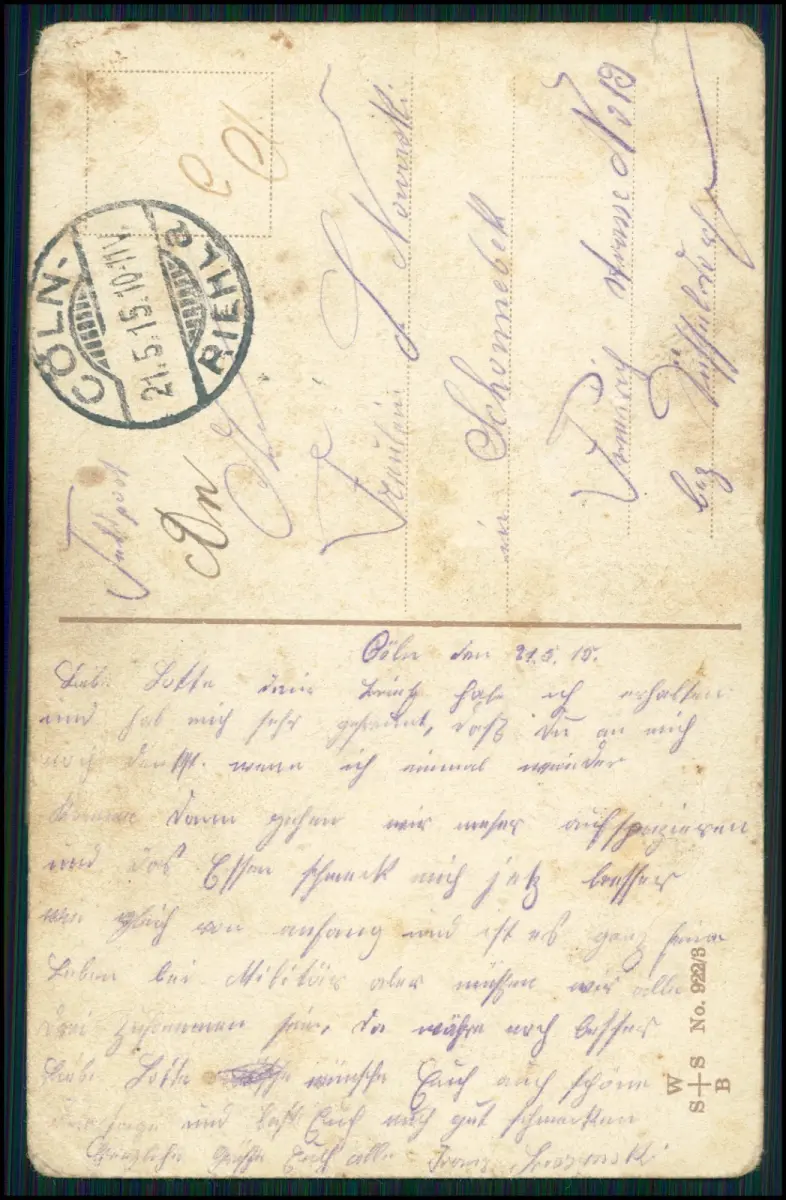 Feldpost
An
Fräulein L Nowizki.
in Schonnebek
straße No 19
bez Düsseldorf
CÖLN-RIEHL a
21.5.15.10-11V.
Cöln den 21.5.15.
Liebe Lotte dein Brief habe ich erhalten
und hab mich sehr gefreunt, daß Du an mich
noch denkst. wenn ich einmal wieder
komme dann gehen wir wieder auf spazieren
und das Essen schmeckt mich jetz besser
wie gleich von anfang und ist es ganz
Leben bei Militär aber müssen wir alle
drei zusammen sein, da währe noch besser
Liebe Lotte wünsche Euch auch schöne
und laßt Euch auch gut schmecken
Herzliche Grüße Euch alle Franz
W
S+S
B
No. 922/3